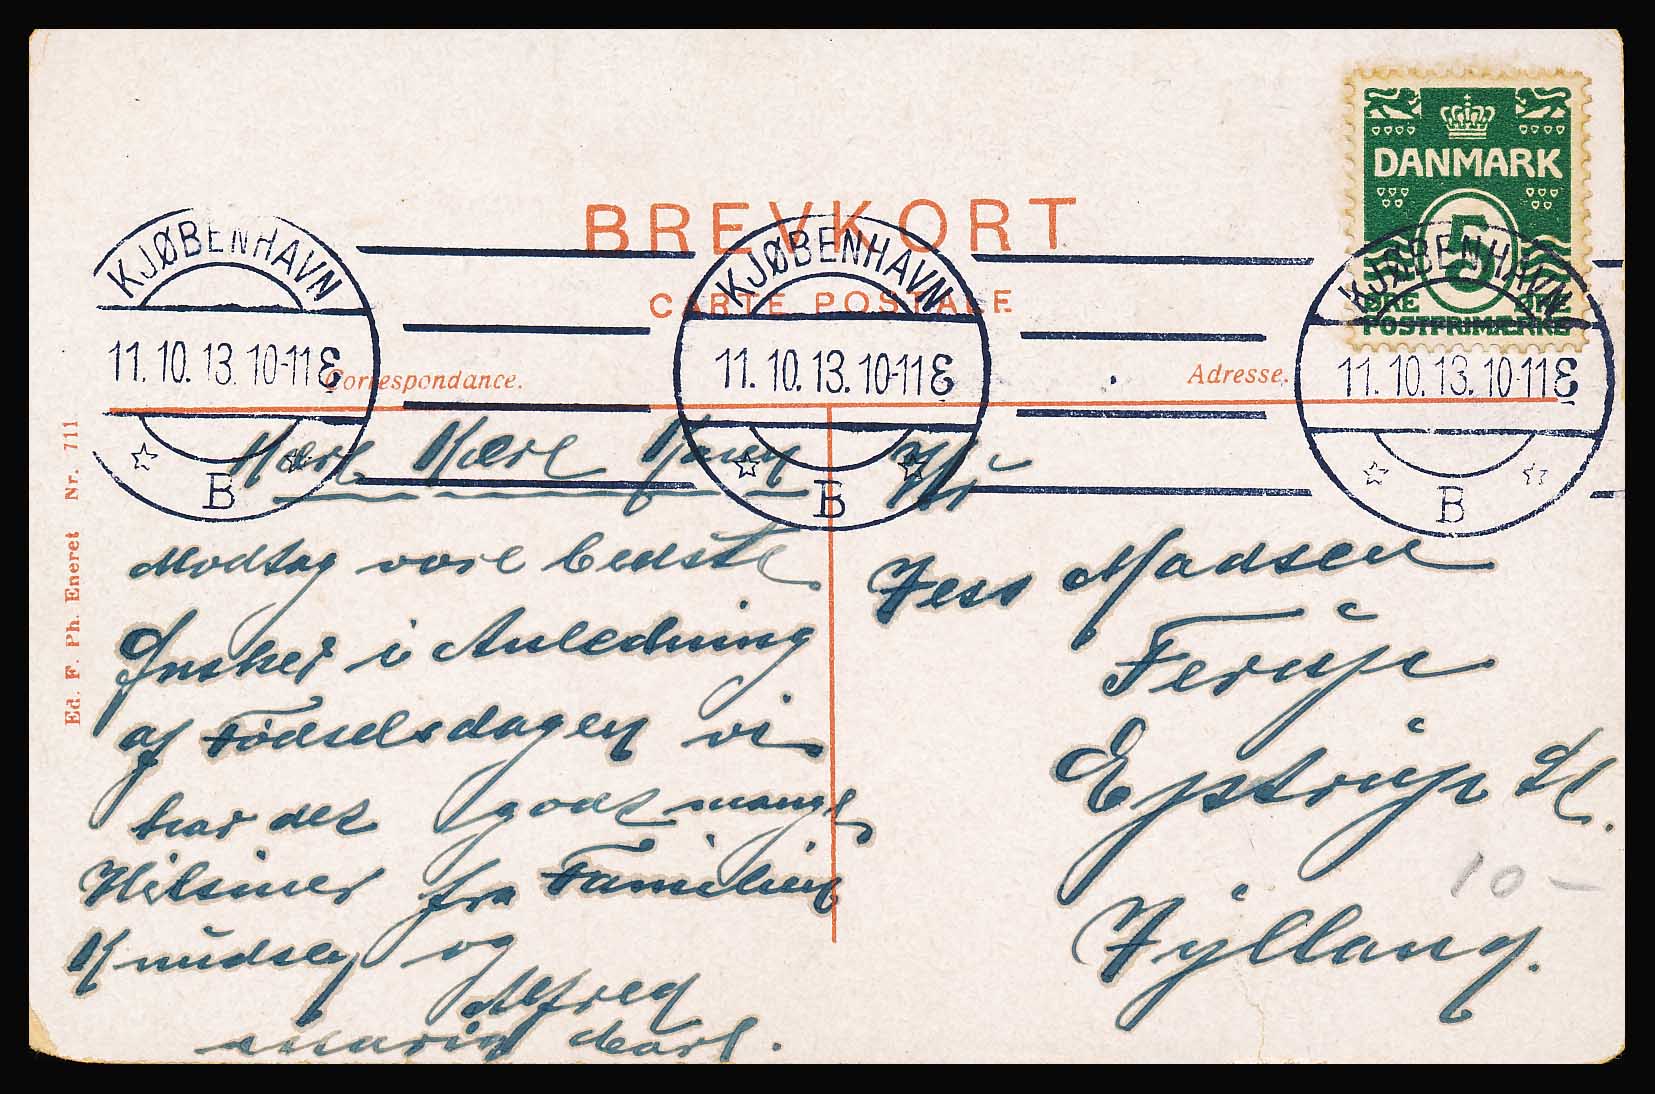 DANMARK
5
ØRE
POSTFRIMÆRKE
BREVKORT
CARTE POSTALE
KJØBENHAVN
11.10.13. 10-11 E
B
KJØBENHAVN
11.10.13. 10-11 E
B
KJØBENHAVN
11.10.13. 10-11 E
B
Correspondance.
Adresse.
Ed. F. Ph. Eneret Nr. 711
Kære
Modtag vore bedste
Ønsker i Anledning
af Fødselsdagen vi
har det godt mange
Hilsner fra Familien
Knudsen og
Alfred
Jess Madsen
Ferup
Jylland.
10-